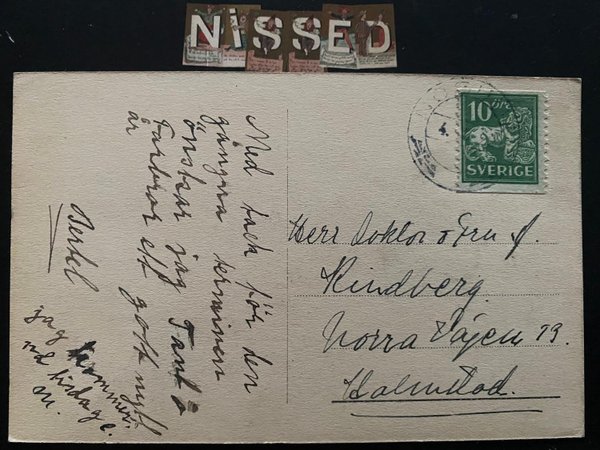 NiSSED
Med tack för den
gångna terminen
önskar jag Tant o
Farbror ett gott nytt
år
Bertel
jag kommer
tisdag e.
m.
10 ÖRE
SVERIGE
Herr Doktor o Fru J.
Kindberg
Norra Vägen 19.
Halmstad.